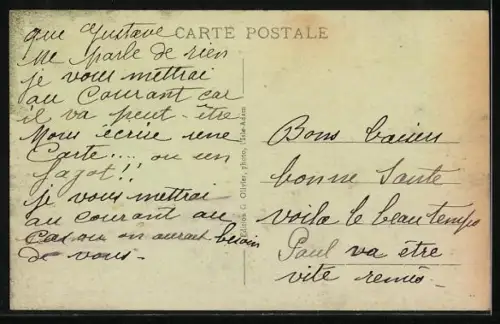 CARTE POSTALE
que Gustave
me parle de rien
je vous mettrai
au courant car
il va peut-être
Nous écrire une
Carte.... ou un
fagot!.
je vous mettrai
au courant au
cas ou on aurait besoin
de vous-
Edition G. Olivier, photo, l'Isle-Adam
Bons baisers
bonne Sante
voila le beau temps
Paul va être
vite remis-